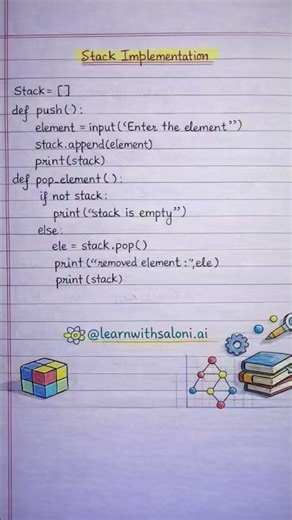 Stack Implementation
Stack = []
def push():
element = input("Enter the element")
stack.append(element)
print(stack)
def pop_element():
if not stack:
print("stack is empty")
else:
ele = stack.pop()
print("removed element:",ele)
print(stack)
@learnwithsaloni.ai